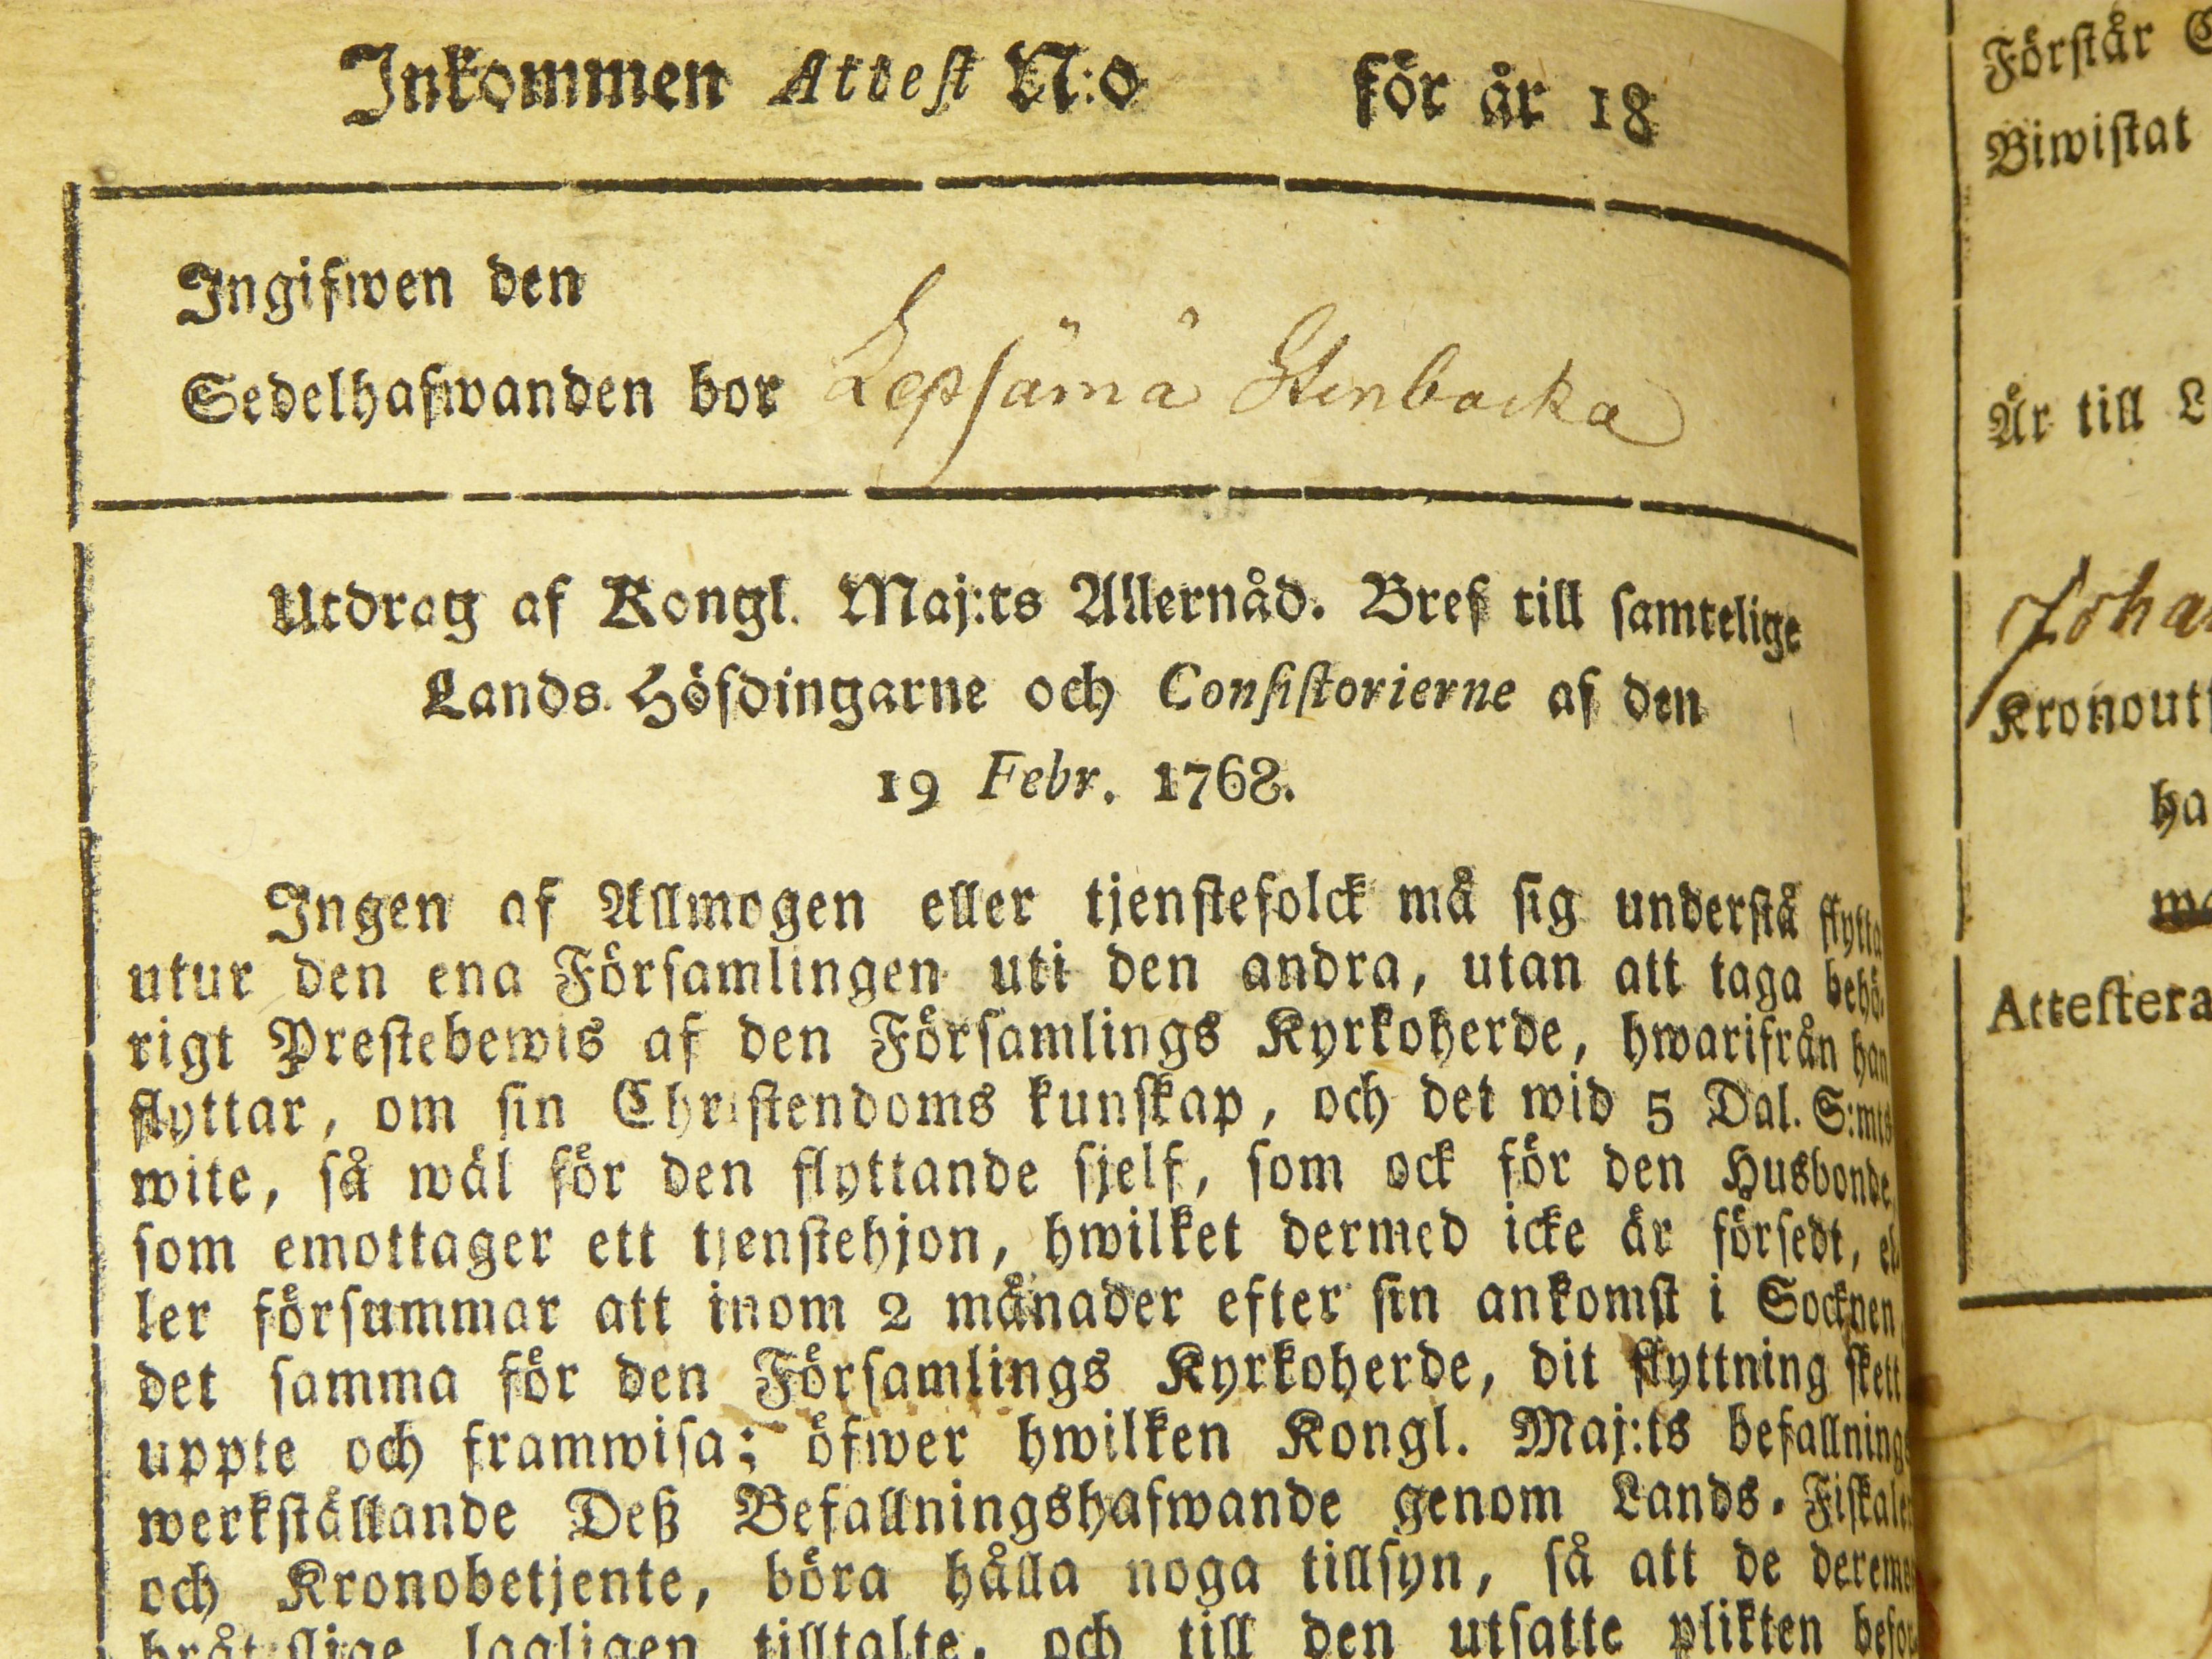 Inkommen Attest N:o för år 18
Ingifwen den
Sedelhafwanden bor Lepsämä Stenbacka
Utdrag af Kongl. Maj:ts Allernåd. Bref till samtelige
Lands-Höfdingarne och Consistorierne af den
19 Febr. 1768.
Ingen af Allmogen eller tjenstefolck må sig understå flytta
utur den ena Församlingen uti den andra, utan att taga behö-
rigt Prestebewis af den Församlings Kyrkoherde, hwarifrån han
flyttar, om sin Christendoms kunskap, och det wid 5 Dal. S:mts
wite, så wäl för den flyttande sjelf, som ock för den Husbonde,
som emottager ett tjenstehjon, hwilket dermed icke är försedt, el-
ler försummar att inom 2 månader efter sin ankomst i Socknen
det samma för den Församlings Kyrkoherde, dit flyttning skett
uppte och framwisa; öfwer hwilken Kongl. Maj:ts befallnings
werkställande Deß Befallningshafwande genom Lands-Fiskaler
och Kronobetjente, böra hålla noga tillsyn, så att de deremo
lagligen tilltalte, och till den utsatte plikten befor
Förstår
Biwistat
Är till L
Joha
Kronouts
ha
Attestera